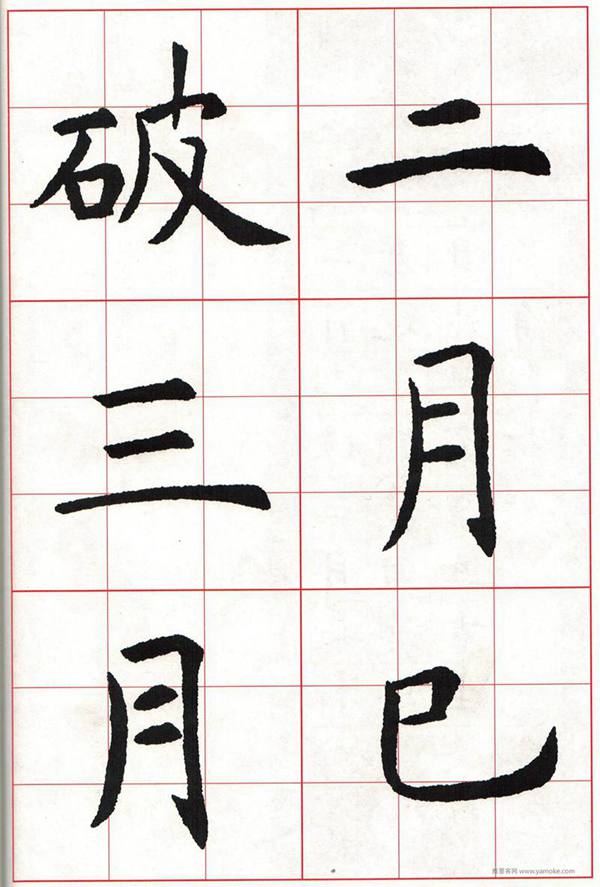 二月已
破三月
雅墨客网 www.yamoke.com